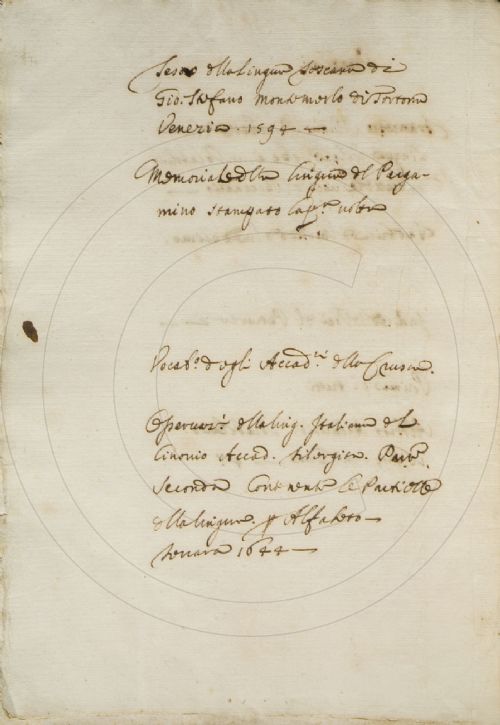 Tesoro della lingua Toscana di
Gio: Stefano Montemerlo di Tortona
Venezia 1594
Memoriale della lingua del Perga-
mino stampato la pa. volta
Vocabo. degli Accadci. della Crusca.
Osservazi. della ling. Italiana del
Cinonio Accad. filergita. Parte
Seconda Contenente le Particelle
della lingua. p Alfabeto
ferrara 1644